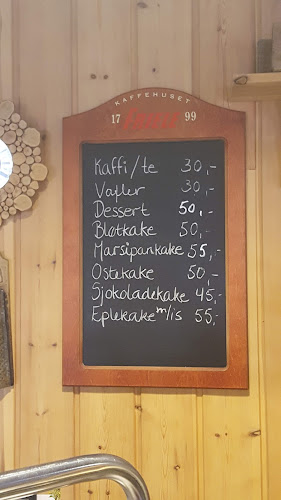 KAFFEHUSET
17 Friele 99
Kaffi/te 30,-
Vafler 30,-
Dessert 50,-
Bløtkake 50,-
Marsipankake 55,-
Ostekake 50,-
Sjokoladekake 45,-
Eplekake m/is 55,-